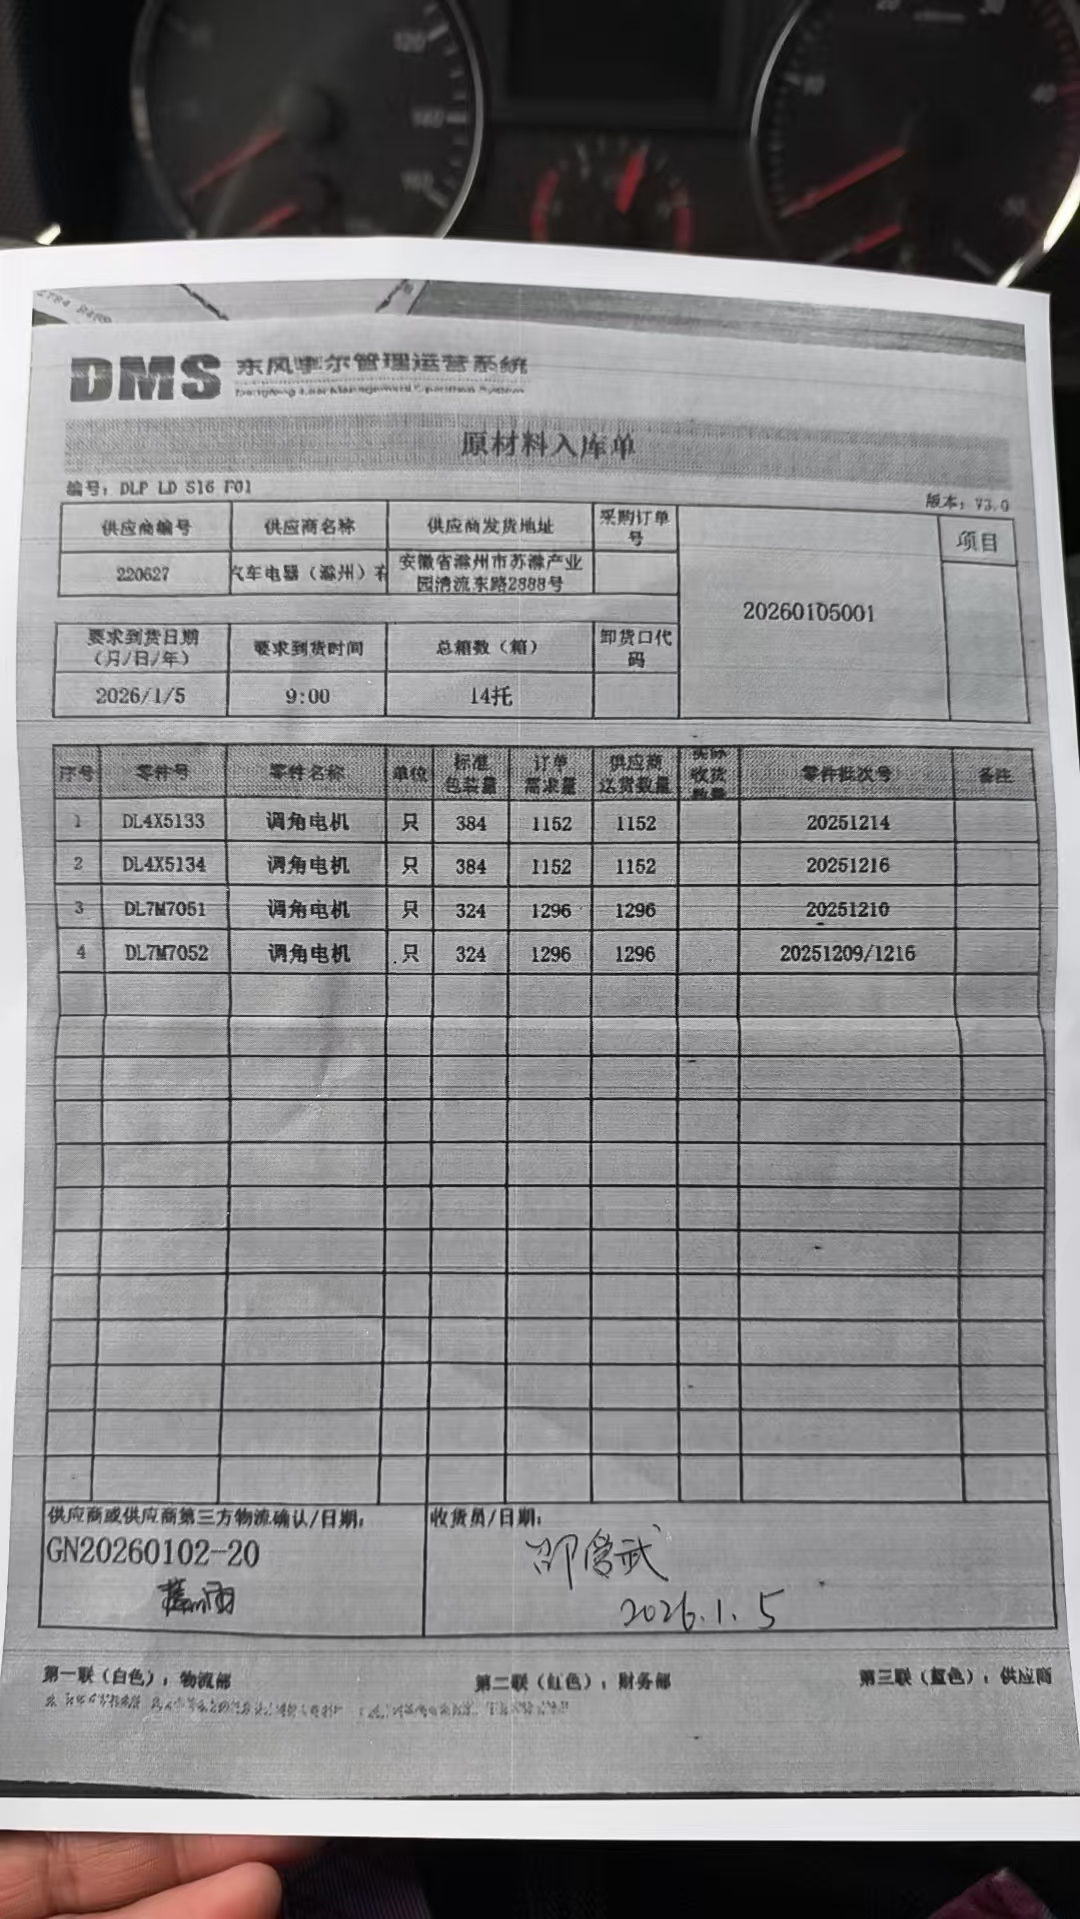 DMS 东风李尔管理运营系统
Dongfeng Lear Management Operation System
原材料入库单
编号: DLP LD S16 F01
版本: V3.0
供应商编号 供应商名称 供应商发货地址 采购订单号 项目
220627 汽车电器（滁州）有 安徽省滁州市苏滁产业园清流东路2888号
20260105001
要求到货日期（月/日/年） 要求到货时间 总箱数（箱） 卸货口代码
2026/1/5 9:00 14托
序号 零件号 零件名称 单位 标准包装量 订单需求量 供应商送货数量 实际收货数量 零件批次号 备注
1 DL4X5133 调角电机 只 384 1152 1152 20251214
2 DL4X5134 调角电机 只 384 1152 1152 20251216
3 DL7M7051 调角电机 只 324 1296 1296 20251210
4 DL7M7052 调角电机 只 324 1296 1296 20251209/1216
供应商或供应商第三方物流确认/日期: 收货员/日期:
GN20260102-20
2026.1.5
第一联（白色）: 物流部 第二联（红色）: 财务部 第三联（蓝色）: 供应商